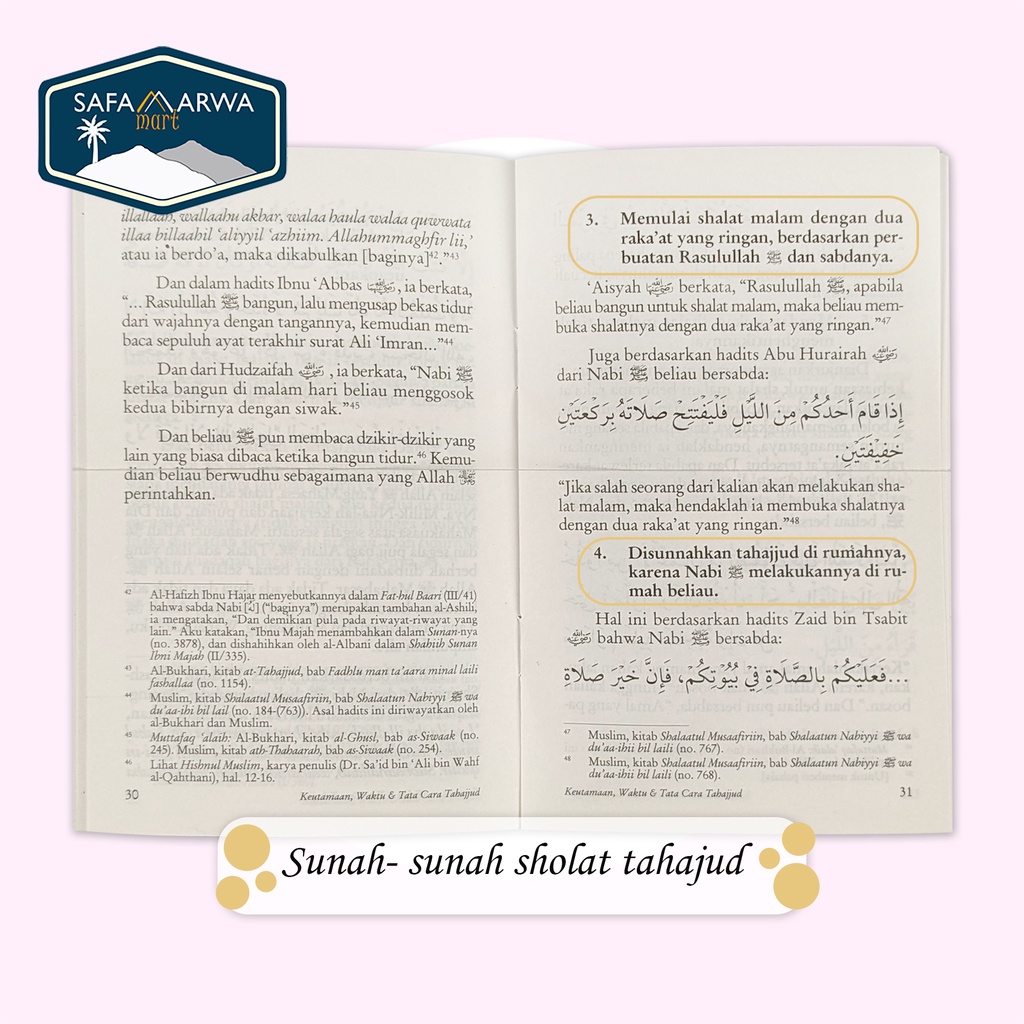 SAFA MARWA
mart
illallaah, wallaahu akbar, walaa haula walaa quwwata
illaa billaahil ‘aliyyil ‘azhiim. Allahummaghfir lii,’
atau ia berdo’a, maka dikabulkan [baginya]⁴².”⁴³
Dan dalam hadits Ibnu ‘Abbas رضي الله عنه, ia berkata,
“... Rasulullah ﷺ bangun, lalu mengusap bekas tidur
dari wajahnya dengan tangannya, kemudian mem-
baca sepuluh ayat terakhir surat Ali ‘Imran...”⁴⁴
Dan dari Hudzaifah رضي الله عنه, ia berkata, “Nabi ﷺ
ketika bangun di malam hari beliau menggosok
kedua bibirnya dengan siwak.”⁴⁵
Dan beliau ﷺ pun membaca dzikir-dzikir yang
lain yang biasa dibaca ketika bangun tidur.⁴⁶ Kemu-
dian beliau berwudhu sebagaimana yang Allah
perintahkan.
42 Al-Hafizh Ibnu Hajar menyebutkannya dalam Fat-hul Baari (III/41)
bahwa sabda Nabi [لَهُ] (“baginya”) merupakan tambahan al-Ashili,
ia mengatakan, “Dan demikian pula pada riwayat-riwayat yang
lain.” Aku katakan, “Ibnu Majah menambahkan dalam Sunan-nya
(no. 3878), dan dishahihkan oleh al-Albani dalam Shahiih Sunan
Ibni Majah (II/335).
43 Al-Bukhari, kitab at-Tahajjud, bab Fadhlu man ta’aara minal laili
fashallaa (no. 1154).
44 Muslim, kitab Shalaatul Musaafiriin, bab Shalaatun Nabiyyi ﷺ wa
du’aa-ihi bil lail (no. 184-(763)). Asal hadits ini diriwayatkan oleh
al-Bukhari dan Muslim.
45 Muttafaq ‘alaih: Al-Bukhari, kitab al-Ghusl, bab as-Siwaak (no.
245). Muslim, kitab ath-Thahaarah, bab as-Siwaak (no. 254).
46 Lihat Hishnul Muslim, karya penulis (Dr. Sa’id bin ‘Ali bin Wahf
al-Qahthani), hal. 12-16.
30 Keutamaan, Waktu & Tata Cara Tahajjud
3. Memulai shalat malam dengan dua
raka’at yang ringan, berdasarkan per-
buatan Rasulullah ﷺ dan sabdanya.
‘Aisyah رضي الله عنها berkata, “Rasulullah ﷺ, apabila
beliau bangun untuk shalat malam, maka beliau mem-
buka shalatnya dengan dua raka’at yang ringan.”⁴⁷
Juga berdasarkan hadits Abu Hurairah رضي الله عنه
dari Nabi ﷺ beliau bersabda:
إِذَا قَامَ أَحَدُكُمْ مِنَ اللَّيْلِ فَلْيَفْتَتِحْ صَلَاتَهُ بِرَكْعَتَيْنِ
خَفِيْفَتَيْنِ.
“Jika salah seorang dari kalian akan melakukan sha-
lat malam, maka hendaklah ia membuka shalatnya
dengan dua raka’at yang ringan.”⁴⁸
4. Disunnahkan tahajjud di rumahnya,
karena Nabi ﷺ melakukannya di ru-
mah beliau.
Hal ini berdasarkan hadits Zaid bin Tsabit
رضي الله عنه bahwa Nabi ﷺ bersabda:
...فَعَلَيْكُمْ بِالصَّلَاةِ فِيْ بُيُوْتِكُمْ، فَإِنَّ خَيْرَ صَلَاةِ
47 Muslim, kitab Shalaatul Musaafiriin, bab Shalaatun Nabiyyi ﷺ wa
du’aa-ihii bil laili (no. 767).
48 Muslim, kitab Shalaatul Musaafiriin, bab Shalaatun Nabiyyi ﷺ wa
du’aa-ihii bil laili (no. 768).
Keutamaan, Waktu & Tata Cara Tahajjud 31
Sunah- sunah sholat tahajud